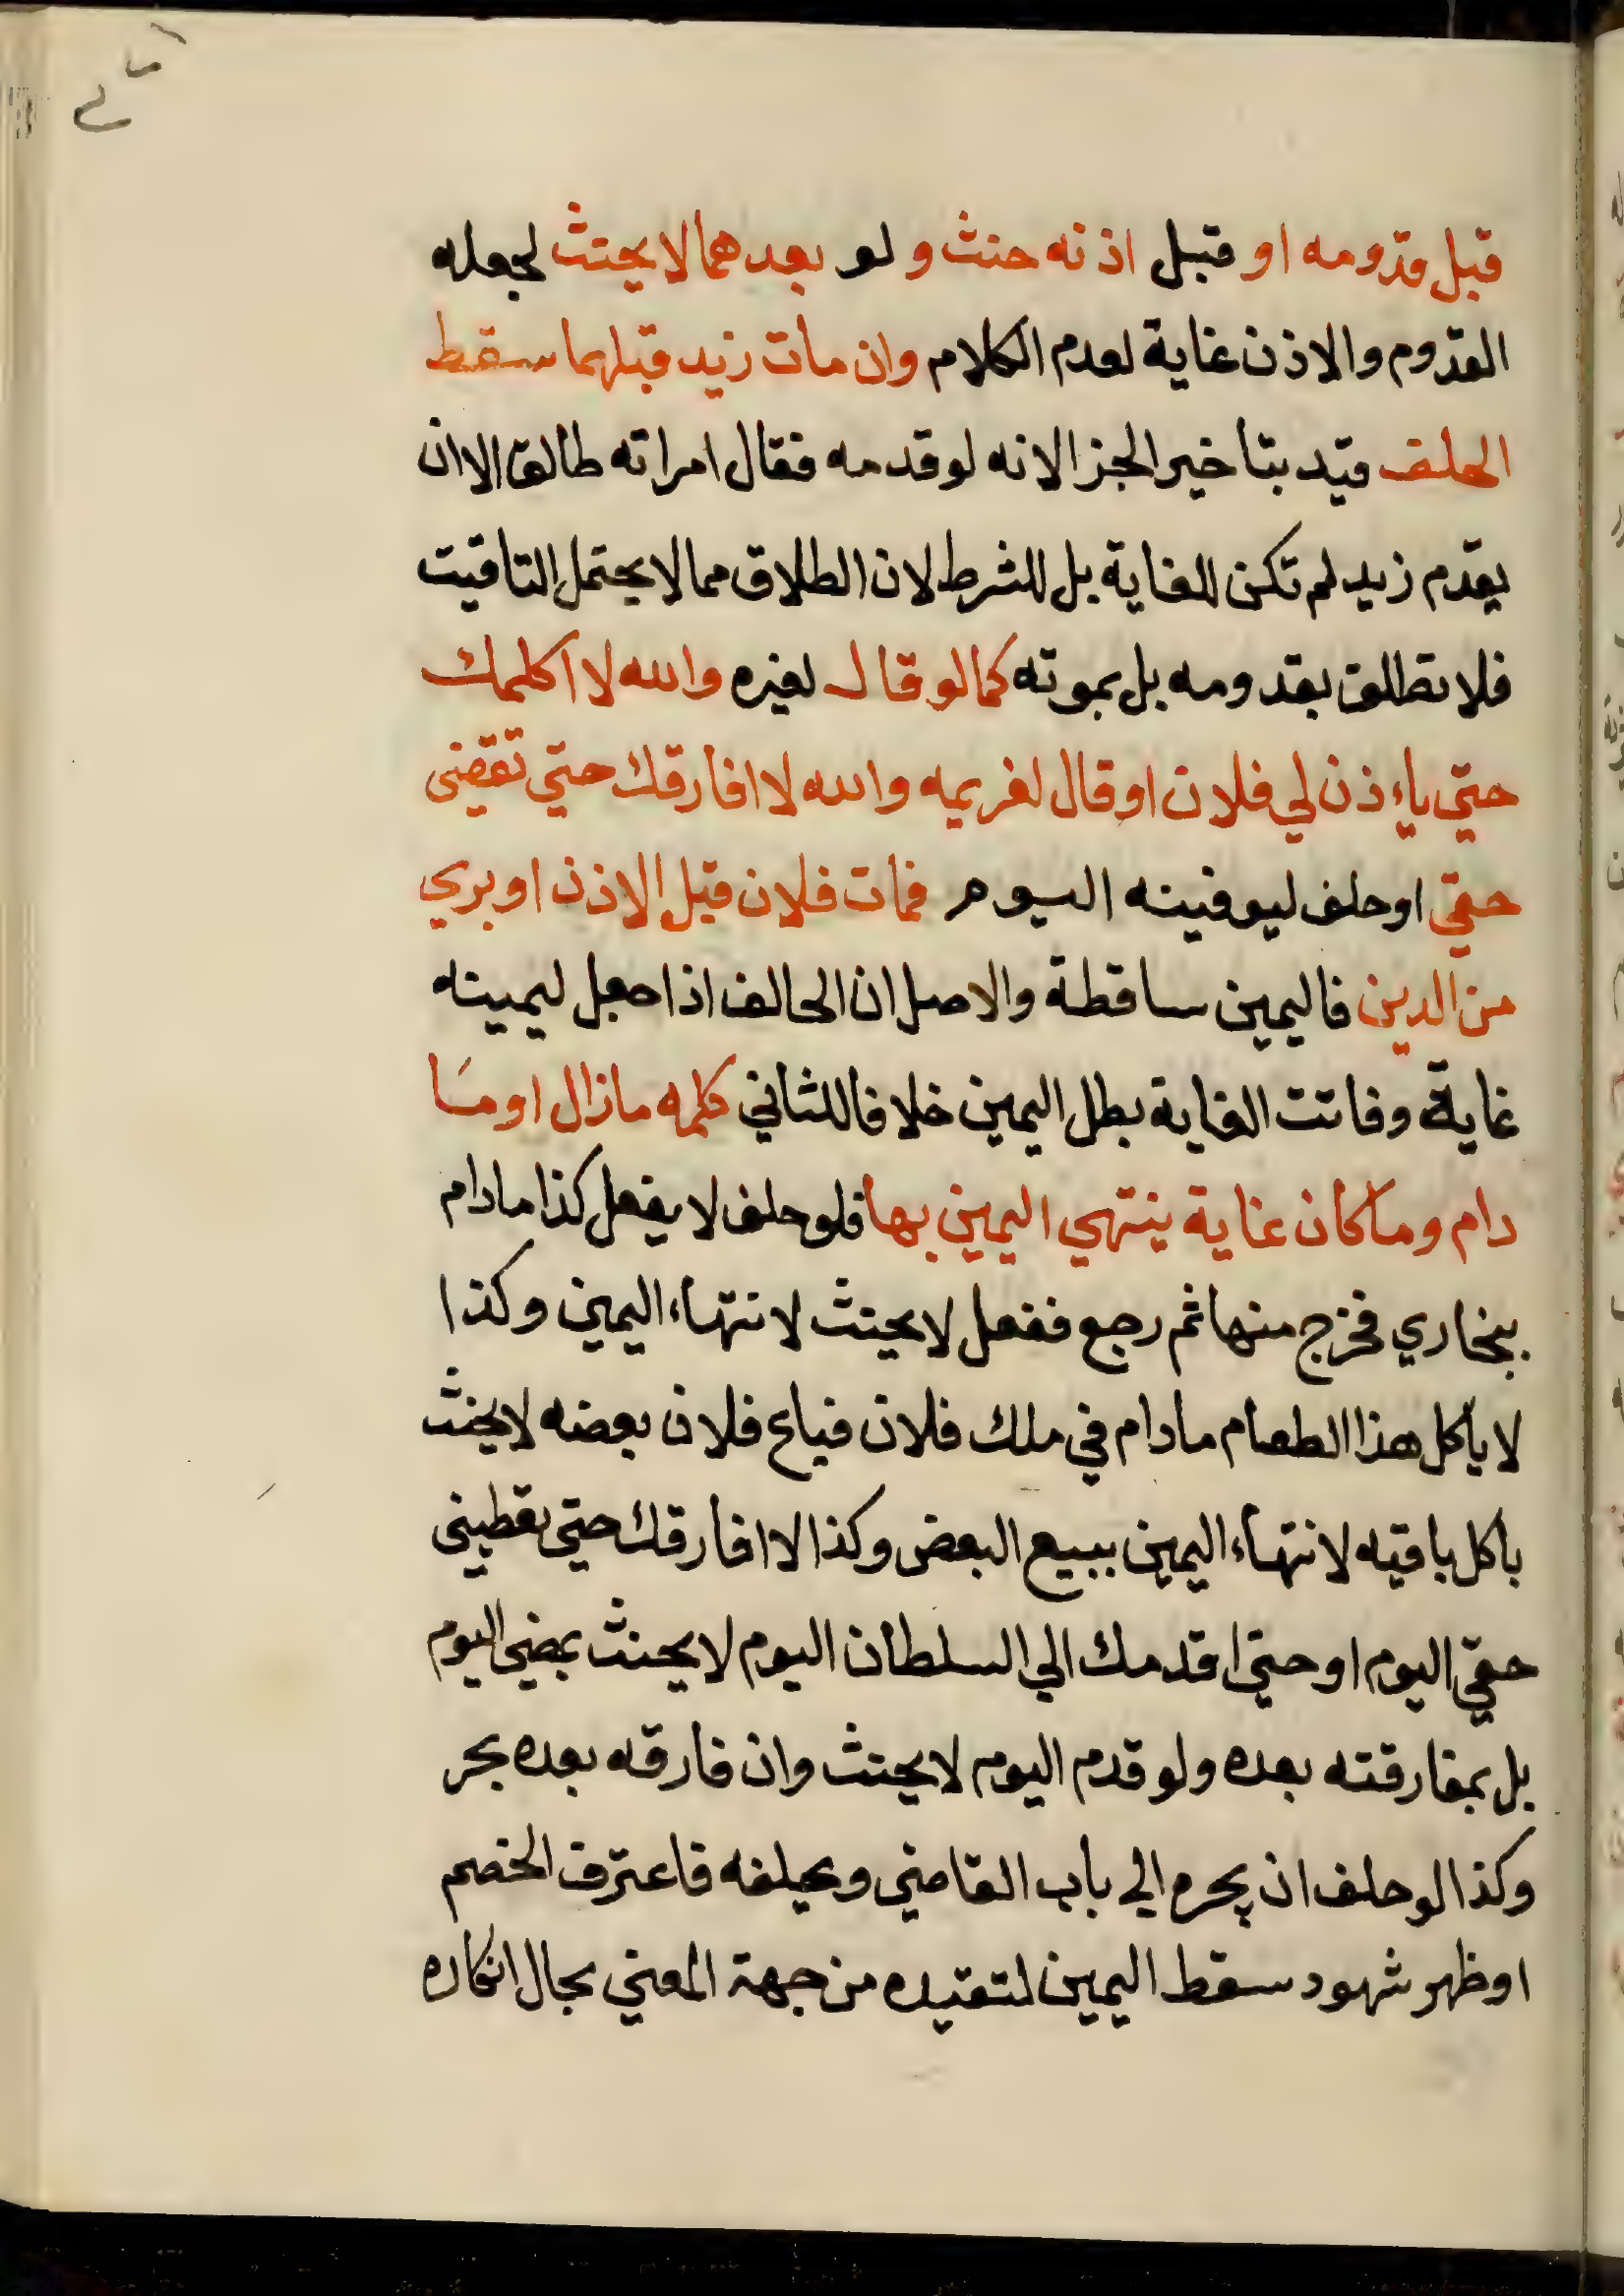 قبل قدومه او قبل اذنه حنث ولو بعدهما لا يحنث لجعله
القدوم والاذن غاية لعدم الكلام وان مات زيد قبلهما سقط
الحلف قيد بتاخير الجزا لانه لو قدمه فقال امراته طالق الا ان
يقدم زيد لم تكن للغاية بل للشرط لان الطلاق مما لا يحتمل التاقيت
فلا تطلق بقدومه بل بموته كما لو قال لغيره والله لا اكلمك
حتي ياءذن لي فلان او قال لغريمه والله لا افارقك حتي تقضني
حقي او حلف ليوفينه اليوم فمات فلان قبل الاذن او بري
من الدين فاليمين ساقطة والاصل ان الحالف اذا جعل ليمينه
غاية وفاتت الغاية بطل اليمين خلافا للثاني كلمه مازال او مَا
دام وما كان غاية ينتهي اليمين بها فلو حلف لا يفعل كذا مادام
ببخاري فخرج منها ثم رجع ففعل لا يحنث لانتهاء اليمين وكذا
لا ياكل هذا الطعام مادام في ملك فلان فباع فلان بعضه لا يحنث
باكل باقيه لانتهاء اليمين ببيع البعض وكذا لا افارقك حتي تعطيني
حقي اليوم او حتي اقدمك الي السلطان اليوم لا يحنث بمضي اليوم
بل بمفارقته بعده ولو قدم اليوم لا يحنث وان فارقه بعده بحر
وكذا لو حلف ان يجره الي باب القاضي ويحلفه فاعترف الخصم
او ظهر شهود سقط اليمين لتقيده من جهة المعني بحال انكاره